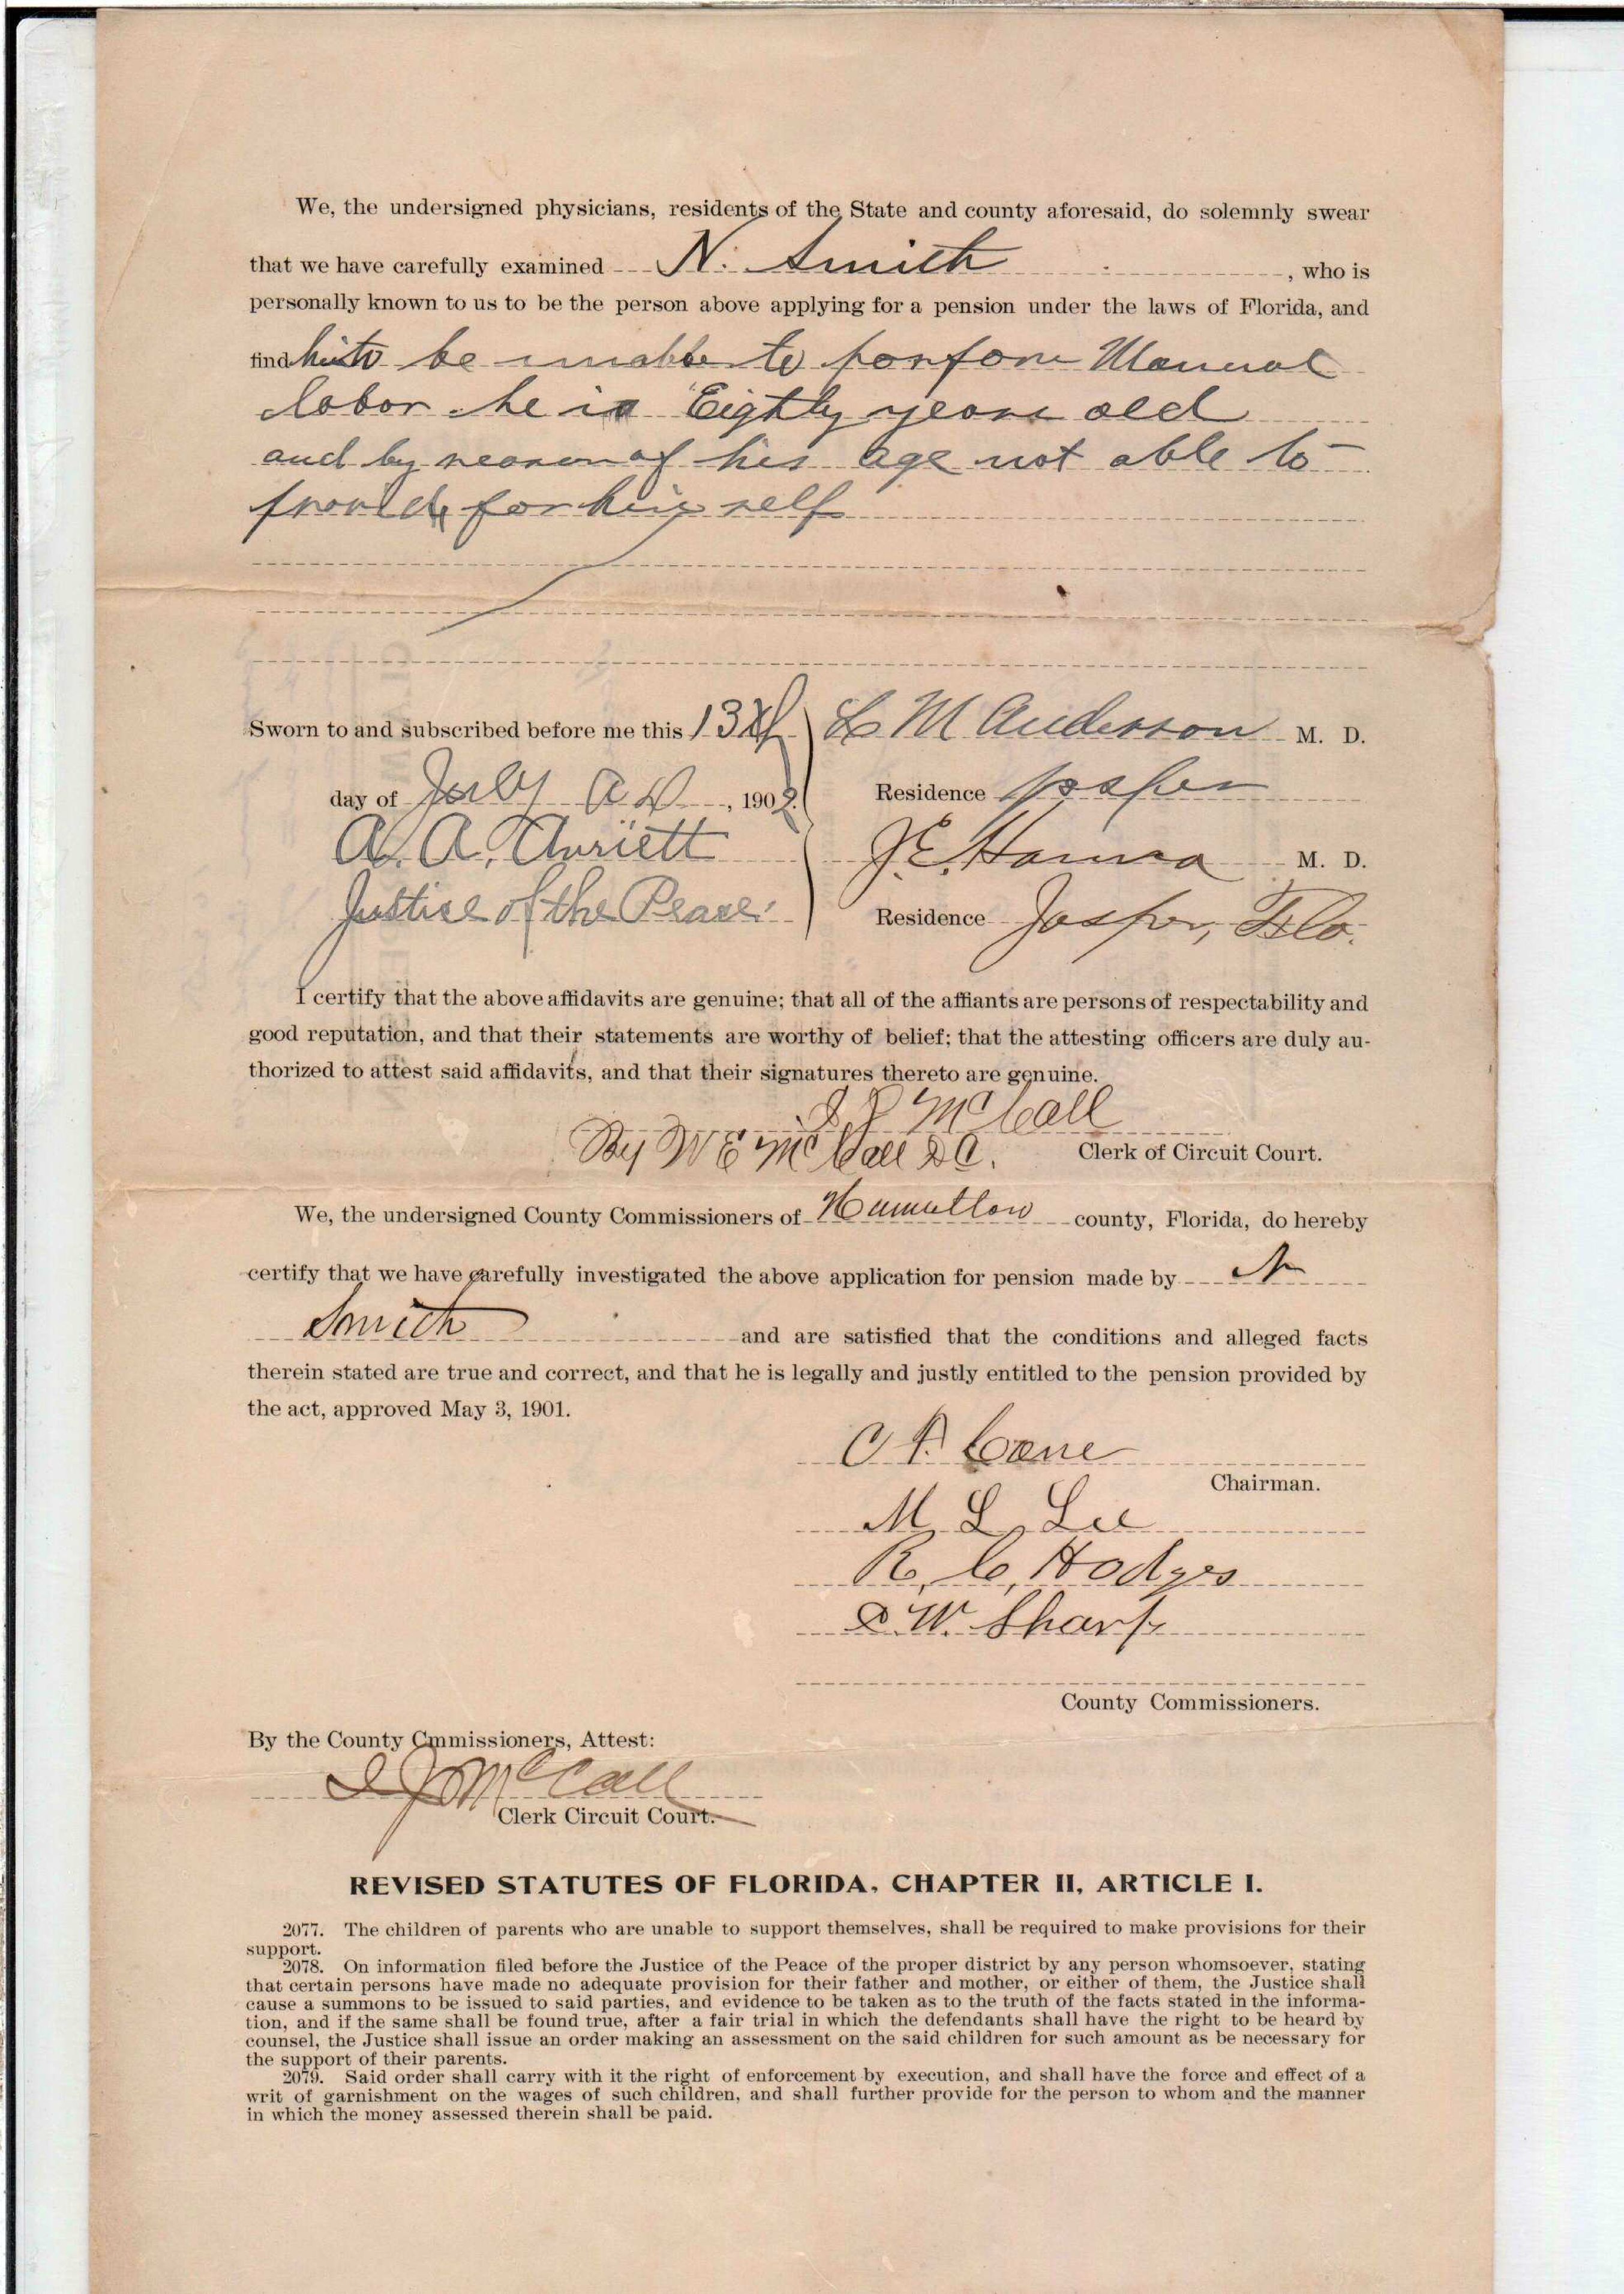 We, the undersigned physicians, residents of the State and county aforesaid, do solemnly swear
that we have carefully examined N. Smith, who is
personally known to us to be the person above applying for a pension under the laws of Florida, and
find be unable to Manual
labor he is Eighty years old
and by reason of his age not able to
for him self
Sworn to and subscribed before me this 13th L M Anderson M. D.
day of July A D, 1902. Residence Jasper
A. A. J. E. Hanna M. D.
Justice of the Peace. Residence Jasper, Fla.
I certify that the above affidavits are genuine; that all of the affiants are persons of respectability and
good reputation, and that their statements are worthy of belief; that the attesting officers are duly au-
thorized to attest said affidavits, and that their signatures thereto are genuine.
McCall
By W E McCall D C. Clerk of Circuit Court.
We, the undersigned County Commissioners of county, Florida, do hereby
certify that we have carefully investigated the above application for pension made by N
Smith and are satisfied that the conditions and alleged facts
therein stated are true and correct, and that he is legally and justly entitled to the pension provided by
the act, approved May 3, 1901.
Cone
Chairman.
M L Lee
R. C. Hodges
W. Sharp
County Commissioners.
By the County Cmmissioners, Attest:
McCall
Clerk Circuit Court.
REVISED STATUTES OF FLORIDA, CHAPTER II, ARTICLE I.
2077. The children of parents who are unable to support themselves, shall be required to make provisions for their
support.
2078. On information filed before the Justice of the Peace of the proper district by any person whomsoever, stating
that certain persons have made no adequate provision for their father and mother, or either of them, the Justice shall
cause a summons to be issued to said parties, and evidence to be taken as to the truth of the facts stated in the informa-
tion, and if the same shall be found true, after a fair trial in which the defendants shall have the right to be heard by
counsel, the Justice shall issue an order making an assessment on the said children for such amount as be necessary for
the support of their parents.
2079. Said order shall carry with it the right of enforcement by execution, and shall have the force and effect of a
writ of garnishment on the wages of such children, and shall further provide for the person to whom and the manner
in which the money assessed therein shall be paid.